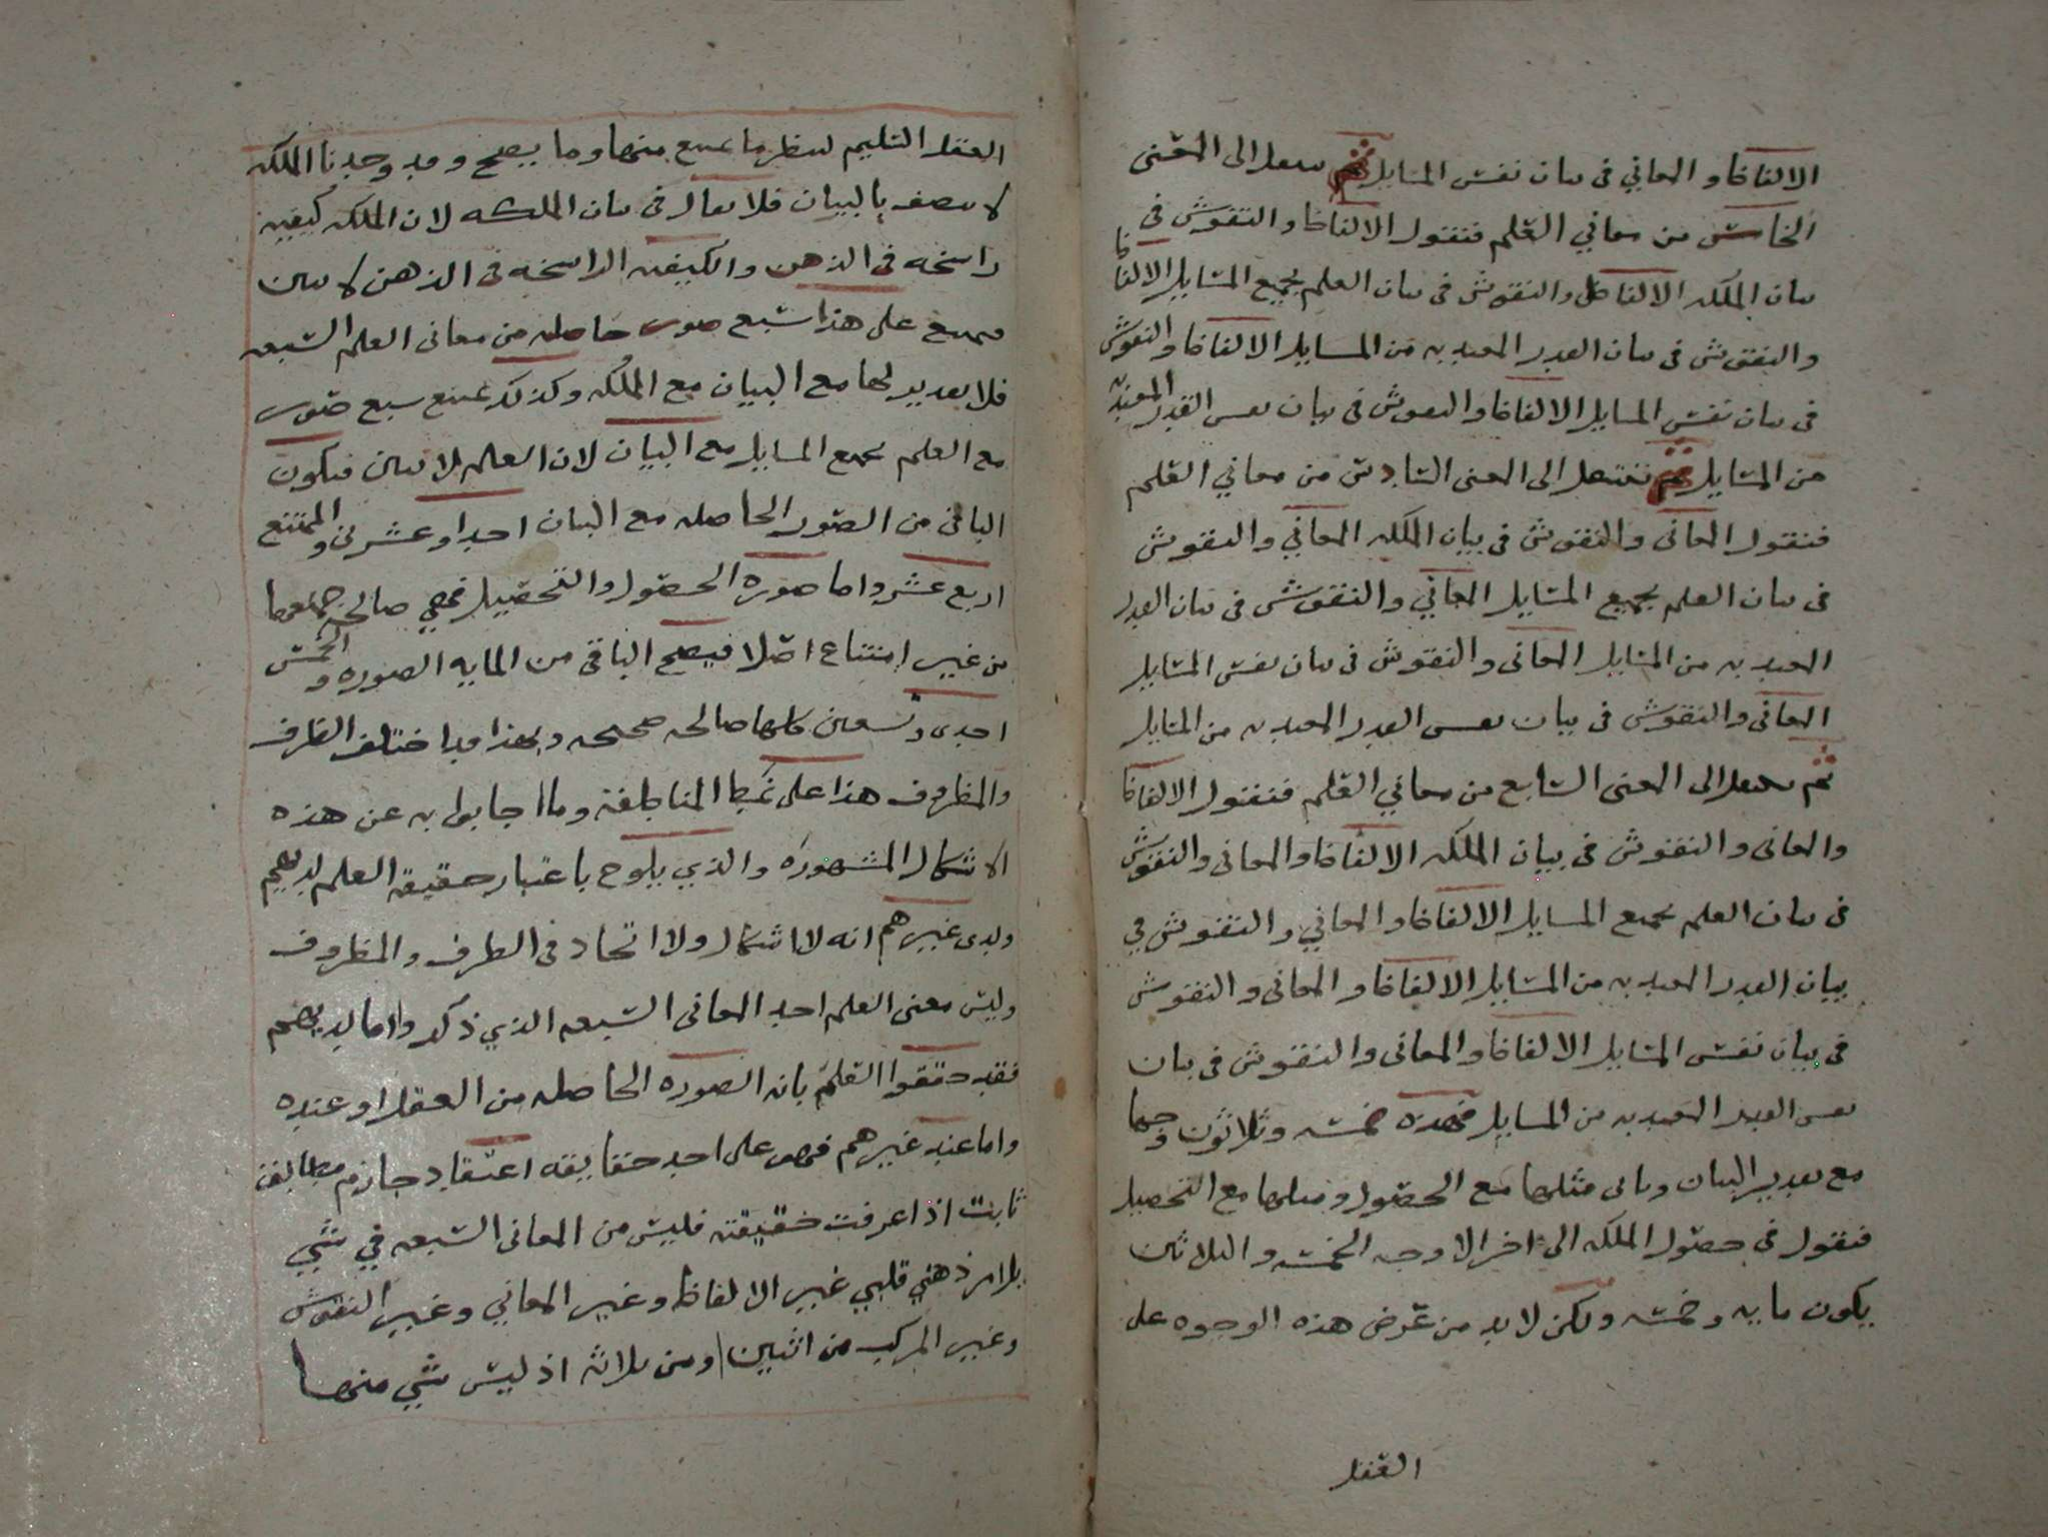 الالفاظ والمعاني في بيان نفس المسايل ثم ننتقل الى المعنى
الخامس من معاني العلم فنقول الالفاظ والنقوش في
بيان الملكه الالفاظ والنقوش في بيان العلم بجميع المسايل الالفاظ
والنقوش في بيان القدر المعتد به من المسايل الالفاظ والنقوش
في بيان نفس المسايل الالفاظ والنقوش في بيان نفس القدر المعتد به
من المسايل ثم ننتقل الى المعنى السادس من معاني العلم
فنقول المعاني والنقوش في بيان الملكه المعاني والنقوش
في بيان العلم بجميع المسايل المعاني والنقوش في بيان القدر
المعتد به من المسايل المعاني والنقوش في بيان نفس المسايل
المعاني والنقوش في بيان نفس القدر المعتد به من المسايل
ثم ننتقل الى المعنى السابع من معاني العلم فنقول الالفاظ
والمعاني والنقوش في بيان الملكه الالفاظ والمعاني والنقوش
في بيان العلم بجميع المسايل الالفاظ والمعاني والنقوش في
بيان القدر المعتد به من المسايل الالفاظ والمعاني والنقوش
في بيان نفس المسايل الالفاظ والمعاني والنقوش في بيان
نفس القدر المعتد به من المسايل فهذه خمسه وثلاثون وجها
مع تقدير البيان وياتي مثلها مع الحصول ومثلها مع التحصيل
فنقول في حصول الملكه الى اخر الاوجه الخمسه والثلاثين
يكون مايه وخمسه ولكن لا بد من عرض هذه الوجوه على
العقل
العقل السليم لينظر ما يمتنع منها وما يصح وقد وجدنا الملكه
لا تتصف بالبيان فلا يقال في بيان الملكه لان الملكه كيفيه
راسخه في الذهن والكيفيه الراسخه في الذهن لا تبين
فيمتنع على هذا سبع صور حاصله من معاني العلم السبعه
فلا تقدير لها مع البيان مع الملكه وكذلك يمتنع سبع صور
مع العلم بجميع المسايل مع البيان لان العلم لا يبين فيكون
الباقي من الصور الحاصله مع البيان احدا وعشرين والممتنع
اربع عشر واما صوره الحصول والتحصيل فهي صالحه جميعها
من غير امتناع اصلا فيصح الباقي من المايه الصوره والخمس
احدى وتسعين كلها صالحه صحيحه وبهذا قد اختلف الظرف
والمظروف هذا على نمط المناطقه وما اجابوا به عن هذه
الاشكال المشهوره والذي يلوح باعتبار حقيقه العلم لديهم
ولدى غيرهم انه لا اشكال ولا اتحاد في الظرف والمظروف
وليس معنى العلم احد المعاني السبعه الذي ذكر واما لديهم
فقد حققوا العلم بانه الصوره الحاصله من العقل او عنده
واما عند غيرهم فهو على احد حقايقه اعتقاد جازم مطابق
ثابت اذا عرفت حقيقته فليس من المعاني السبعه في شي
بل امر ذهني قلبي غير الالفاظ وغير المعاني وغير النقوش
وغير المركب من اثنين او من ثلاثه اذ ليس شي منها